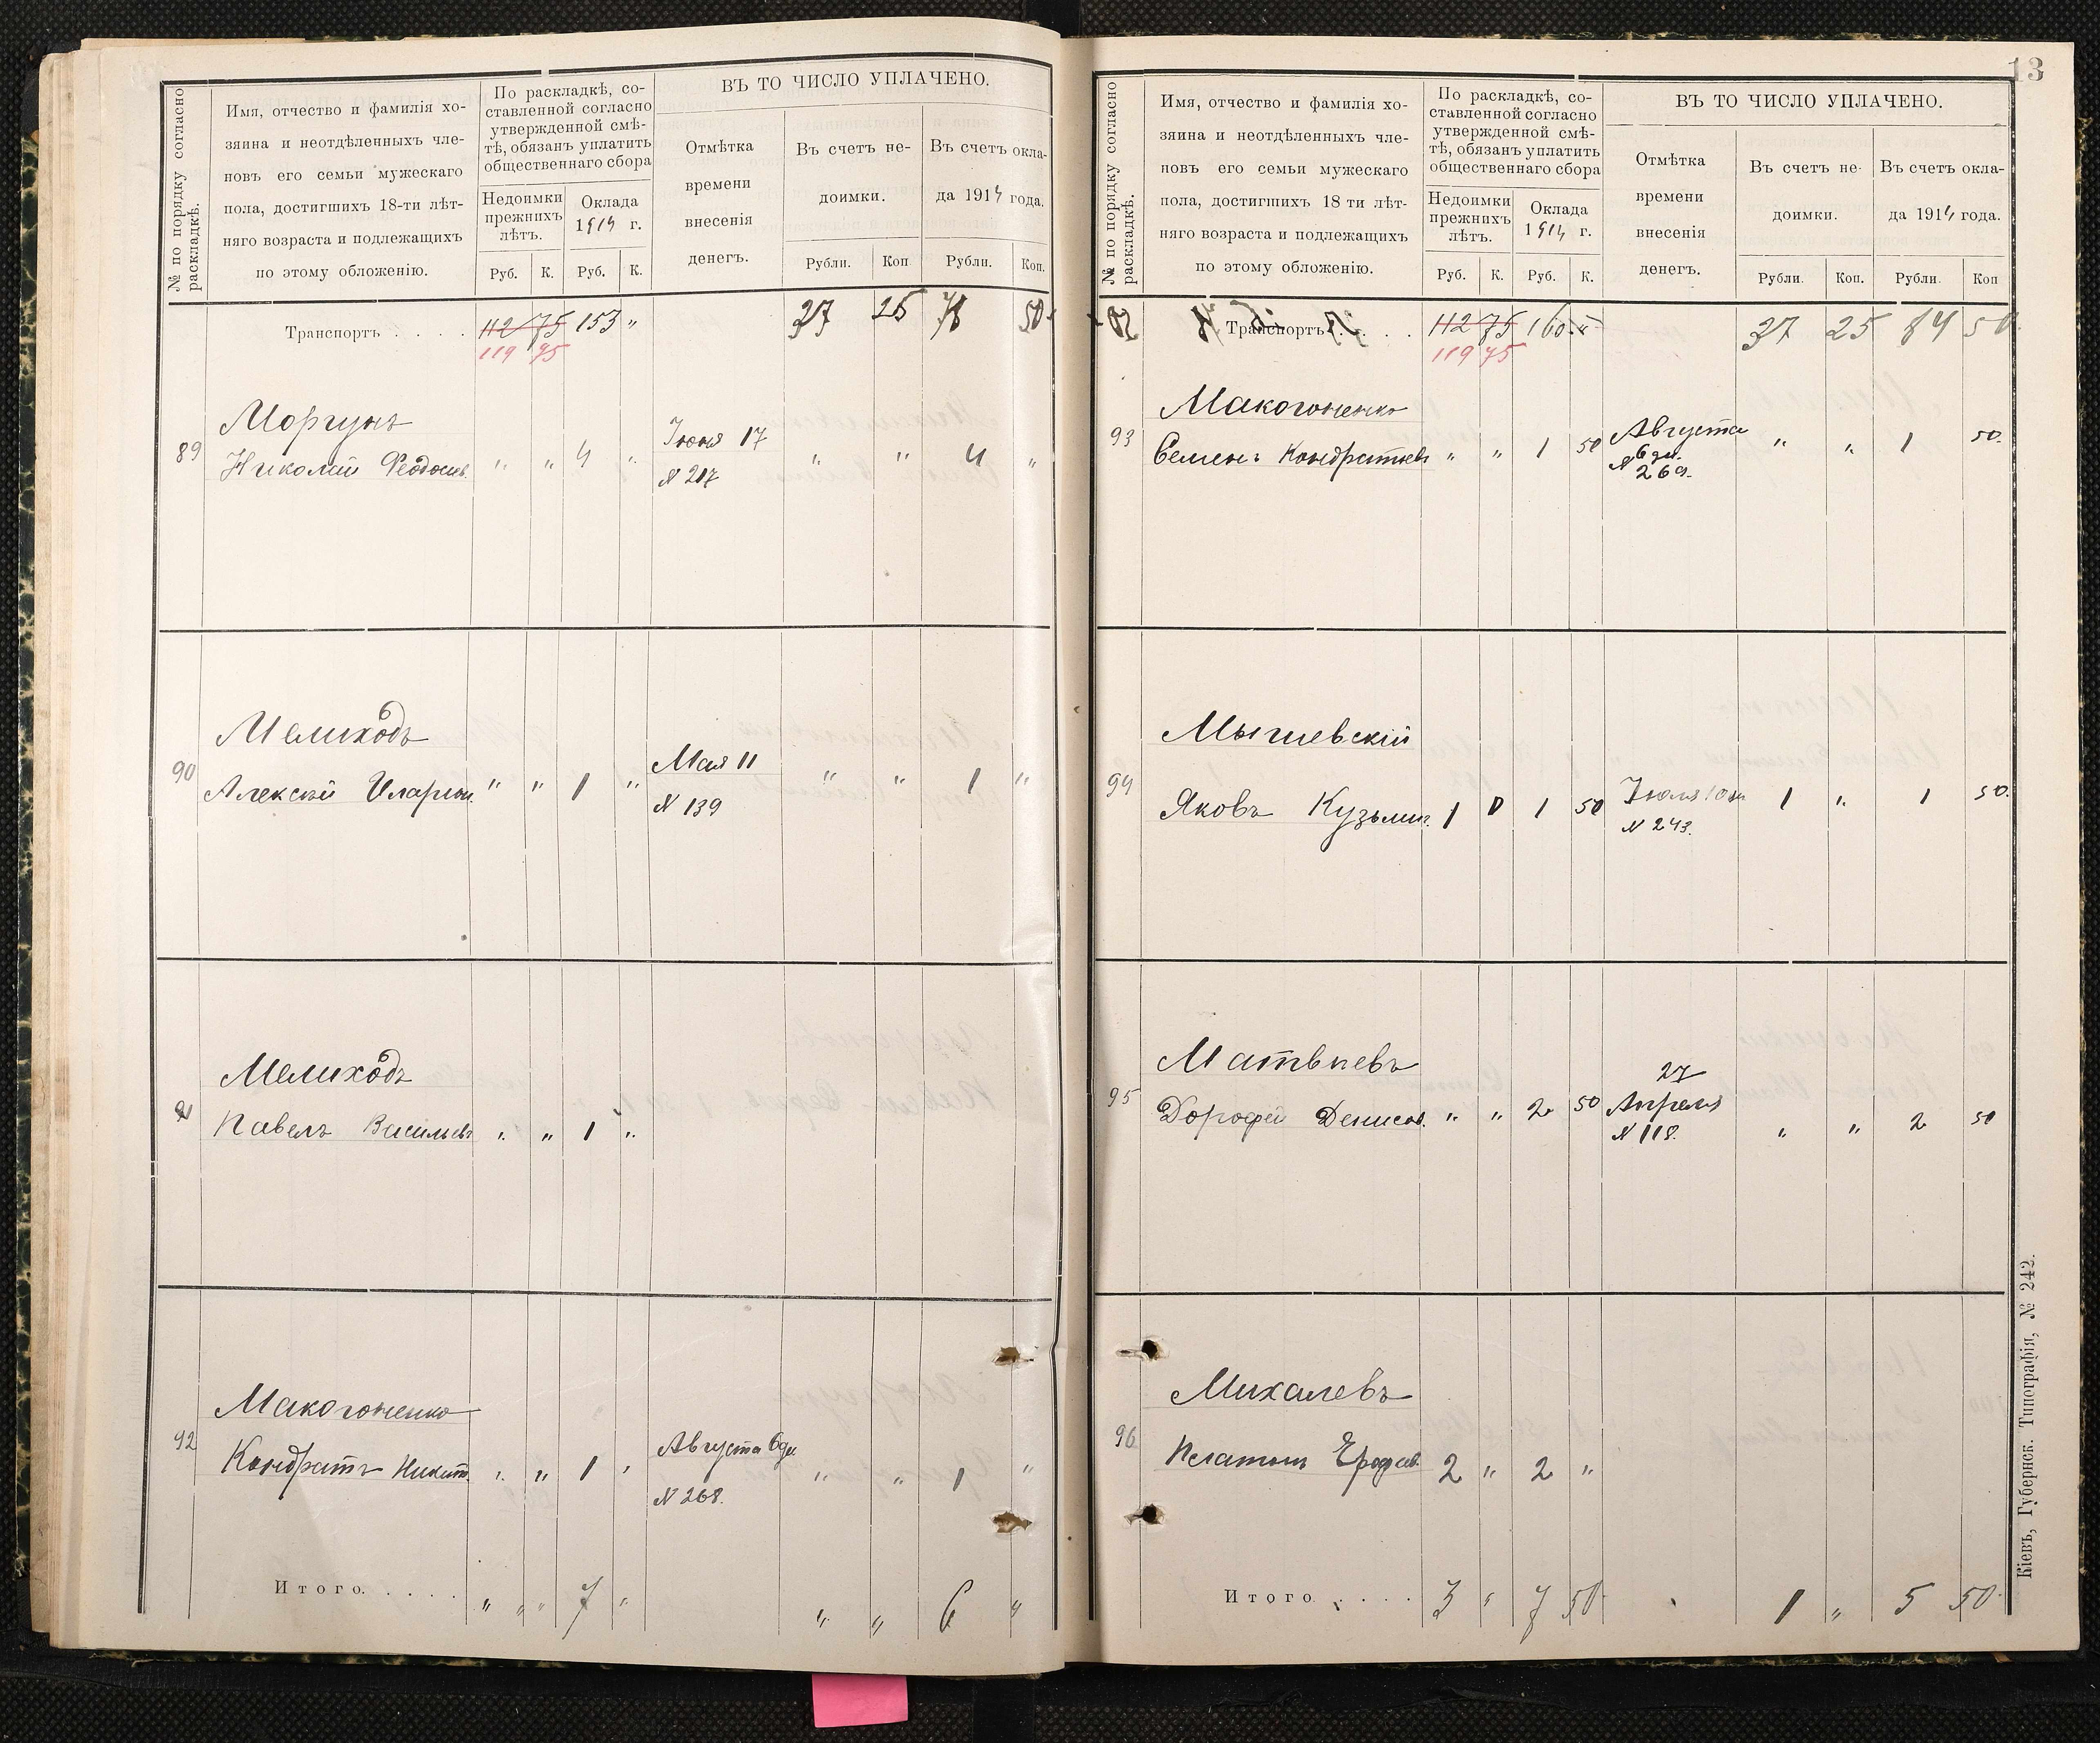 № по порядку согласно
раскладкѣ.
Имя, отчество и фамилія хо-
зяина и неотдѣленныхъ чле-
новъ его семьи мужескаго
пола, достигшихъ 18-ти лѣт-
няго возраста и подлежащихъ
по этому обложенію.
По раскладкѣ, со-
ставленной согласно
утвержденной смѣ-
тѣ, обязанъ уплатить
общественнаго сбора
Недоимки
прежнихъ
лѣтъ.
Оклада
1914 г.
Руб. К. Руб. К.
ВЪ ТО ЧИСЛО УПЛАЧЕНО.
Отмѣтка
времени
внесенія
денегъ.
Въ счетъ не-
доимки.
Въ счетъ окла-
да 1914 года.
Рубли. Коп Рубли. Коп.
Транспортъ . . . . 112 75 153 " 37 25 78 50
119 75
Моргунъ
89 Николай Феодосіев. " " 4 " Іюня 17 " " 4 "
№ 217
Мелиходъ
90 Алексѣй Иларіон. " " 1 " Мая 11 " " 1 "
№ 139
Мелиходъ
91 Павелъ Васильевъ " " 1 "
Макогоненко
92 Кондратъ Никит. " " 1 " Августа 6 дн " " 1 "
№ 268.
Итого. . . . . " " " 7 " " " 6 "
13
№ по порядку согласно
раскладкѣ.
Имя, отчество и фамилія хо-
зяина и неотдѣленныхъ чле-
новъ его семьи мужескаго
пола, достигшихъ 18 ти лѣт-
няго возраста и подлежащихъ
по этому обложенію.
По раскладкѣ, со-
ставленной согласно
утвержденной смѣ-
тѣ, обязанъ уплатить
общественнаго сбора
Недоимки
прежнихъ
лѣтъ.
Оклада
1914 г.
Руб. К. Руб. К.
ВЪ ТО ЧИСЛО УПЛАЧЕНО.
Отмѣтка
времени
внесенія
денегъ.
Въ счетъ не-
доимки.
Въ счетъ окла-
да 1914 года.
Рубли. Коп. Рубли. Коп
Транспортъ . . . . 112 75 160 " 37 25 84 50
119 75
Макогоненко
93 Семенъ Кондратьевъ " " 1 50 Августа " " 1 50
6 дн.
№ 269.
Мышевскій
94 Яковъ Кузьмич. 1 " 1 50 Іюля 10 дн 1 " 1 50
№ 243.
Матвѣевъ
95 Дорофей Денисов. " " 2 50 27 Апреля " " 2 50
№ 118.
Михалевъ
96 Платонъ 2 " 2 "
Итого . . . . 3 " 7 50 1 " 5 50
Кіевъ, Губернск. Типографія, № 242.